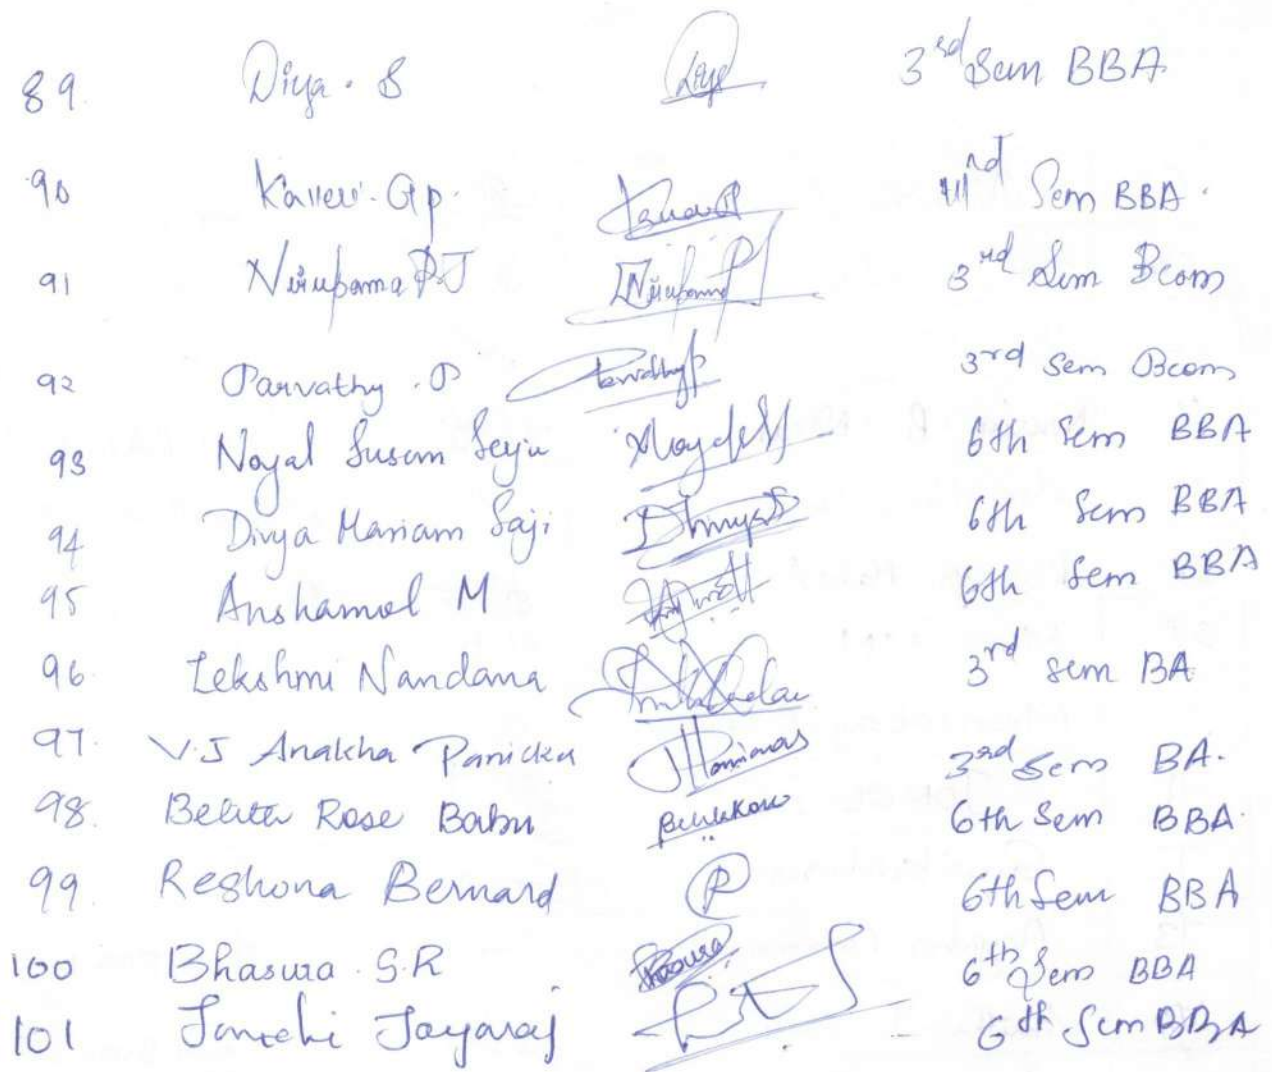 89. Diya. S Diya 3rd Sem BBA
90 Kaveri. G p. III nd Sem BBA.
91 Nirupama P.J Nirupama PJ 3rd Sem Bcom
92 Parvathy. P Parvathy P 3rd Sem Bcom
93 Noyal Susan Seju 6th Sem BBA
94 Divya Mariam Saji 6th Sem BBA
95 Anshamol M 6th Sem BBA
96 Lekshmi Nandana 3rd sem BA
97. V.J Anakha Panicker 3rd Sem BA.
98. Belita Rose Babu 6th Sem BBA.
99 Reshona Bernard R 6th Sem BBA
100 Bhasura. S.R Bhasura 6th Sem BBA
101 Jayaraj 6th Sem BBA